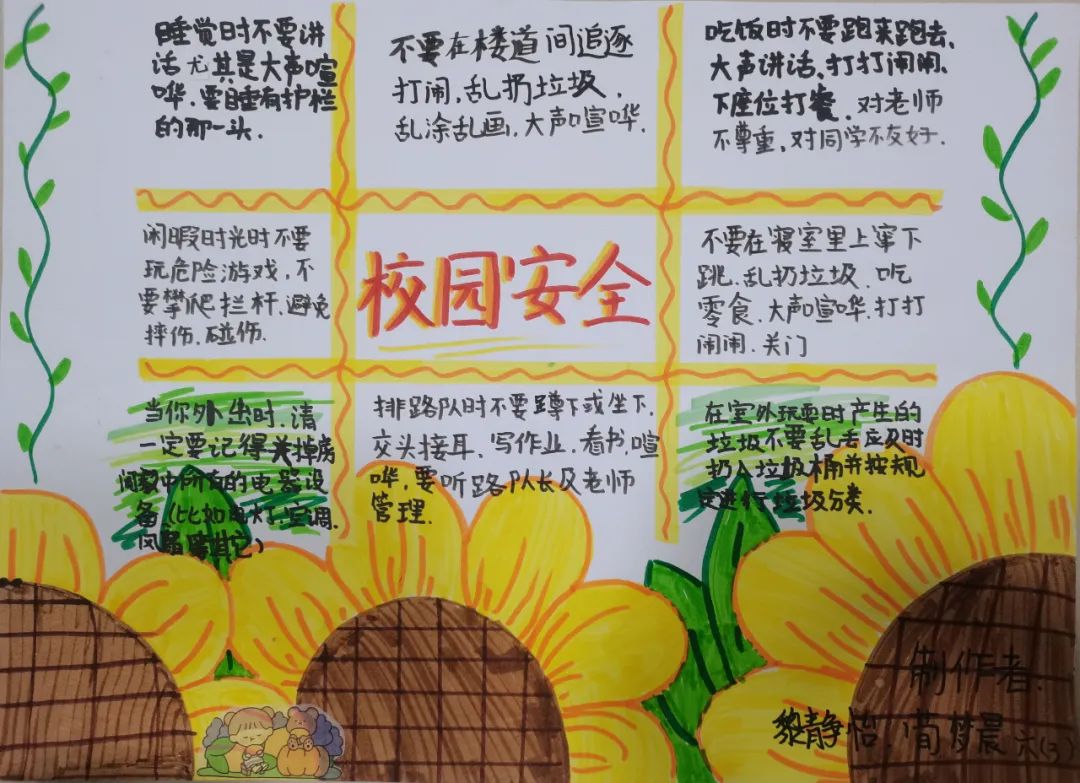 睡觉时不要讲
话尤其是大声喧
哗.要睡有护栏
的那一头.
不要在楼道间追逐
打闹.乱扔垃圾.
乱涂乱画.大声喧哗.
吃饭时不要跑来跑去、
大声讲话、打打闹闹、
下座位打餐. 对老师
不尊重、对同学不友好.
闲暇时光时不要
玩危险游戏、不
要攀爬拦杆、避免
摔伤、碰伤.
校园安全
不要在寝室里上窜下
跳、乱扔垃圾、吃
零食、大声喧哗、打打
闹闹、关门
当你外出时.请
一定要记得关掉房
间家中所有的电器设
备(比如电灯、空调、
风扇等其它)
排路队时不要蹲下或坐下、
交头接耳、写作业、看书、喧
哗、要听路队长及老师
管理.
在室外玩耍时产生的
垃圾不要乱丢应及时
扔入垃圾桶并按规
定进行垃圾分类.
制作者:
黎静怡、荀梦晨 六(3)